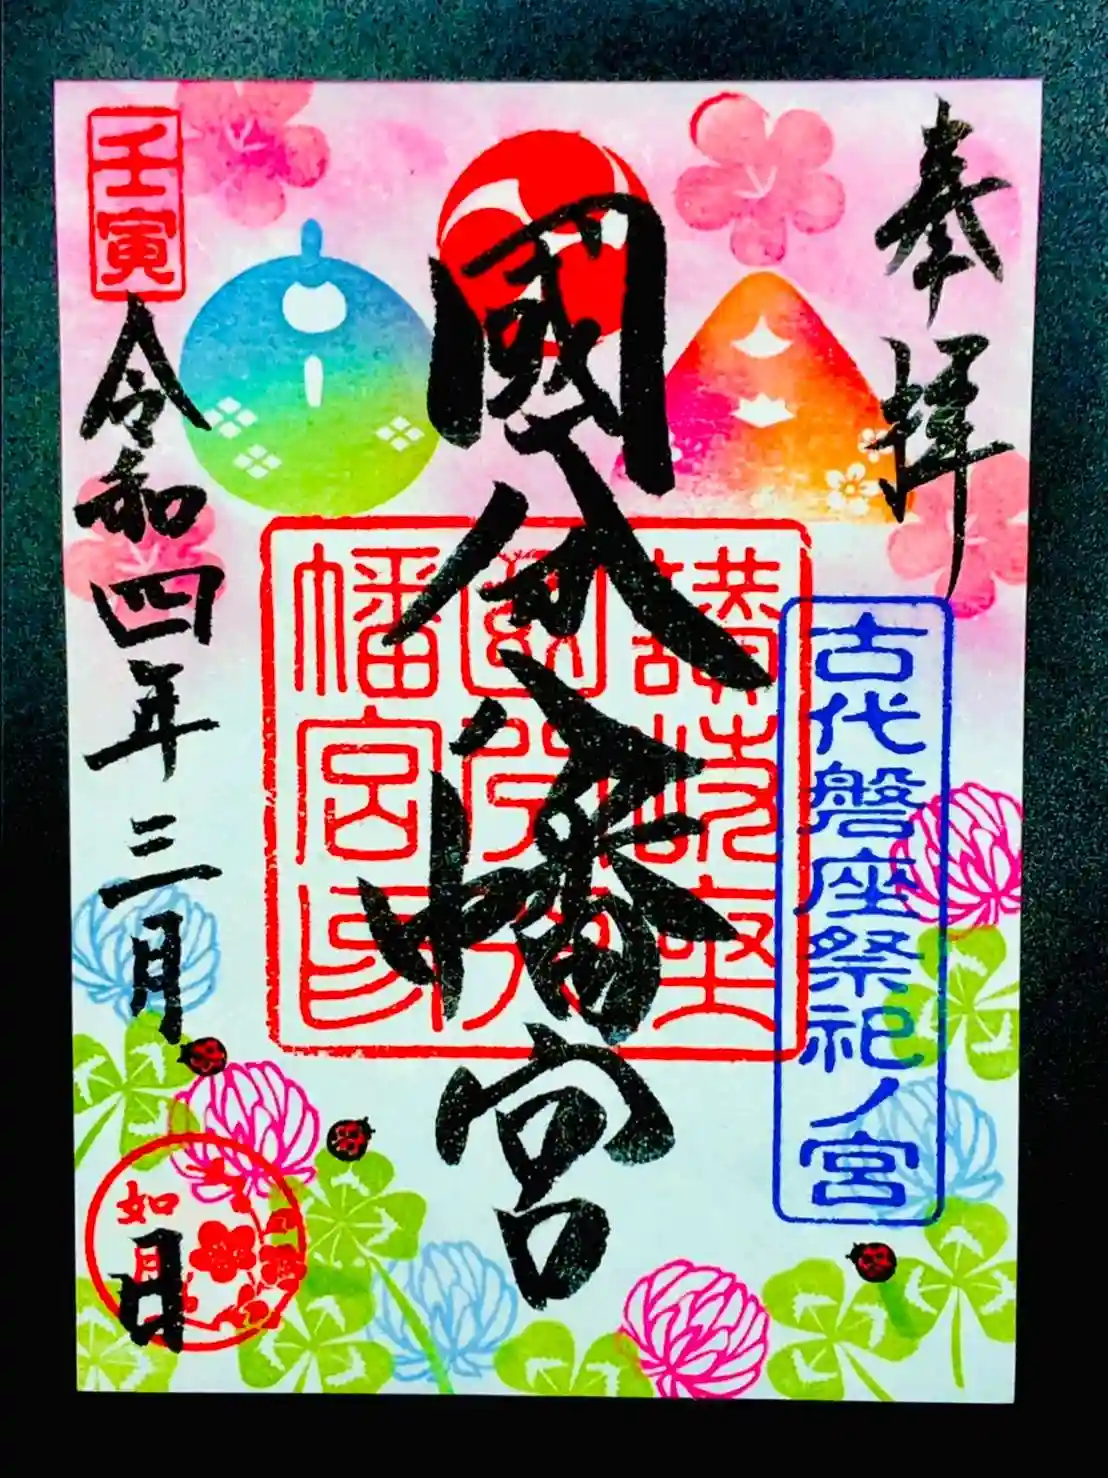 奉拝
古代磐座祭祀ノ宮
國分八幡宮
讃岐國國分八幡宮印
壬寅
令和四年三月 日
如月